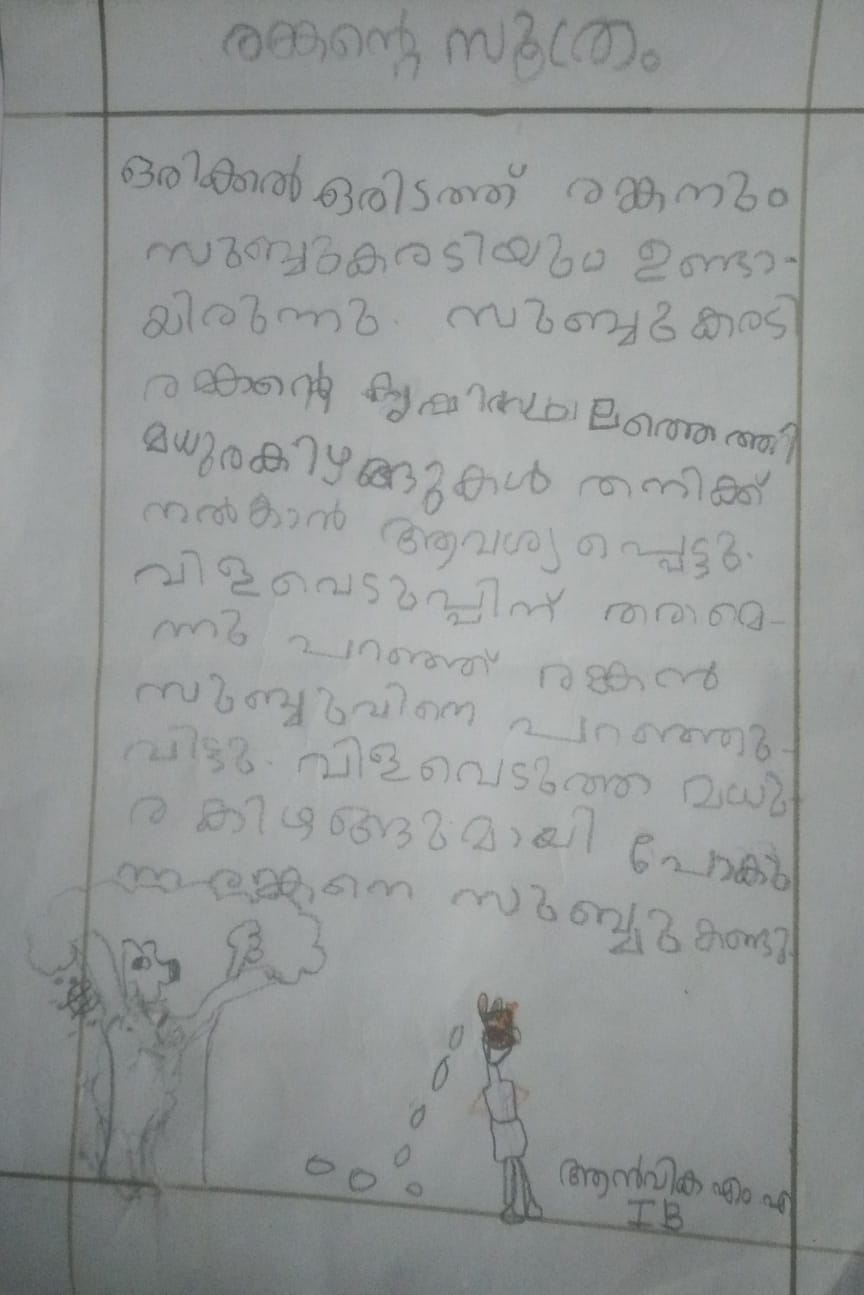 രങ്കന്റെ സൂത്രം
ഒരിക്കൽ ഒരിടത്ത് രങ്കനും
സുബ്ബുകരടിയും ഉണ്ടാ-
യിരുന്നു. സുബ്ബു കരടി
രങ്കന്റെ കൃഷിസ്ഥലത്തെത്തി
മധുരകിഴങ്ങുകൾ തനിക്ക്
നൽകാൻ ആവശ്യപ്പെട്ടു.
വിളവെടുപ്പിന് തരാമെ-
ന്നു പറഞ്ഞ് രങ്കൻ
സുബ്ബുവിനെ പറഞ്ഞു
വിട്ടു. വിളവെടുത്ത മധു
രകിഴങ്ങുമായി പോകു
ന്ന രങ്കനെ സുബ്ബു കണ്ടു.
ആൻവിക എം എ
I B